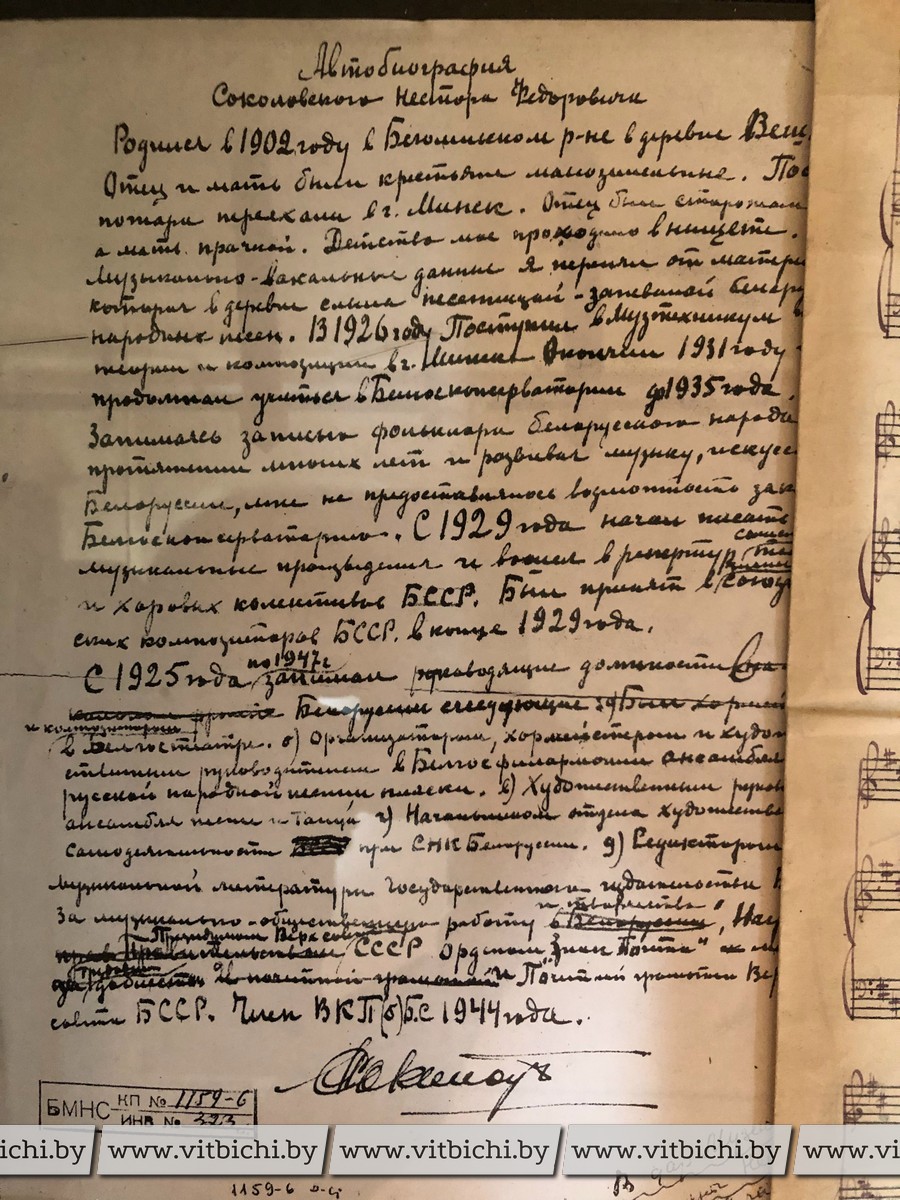 Автобиография
Соколовского Нестора Федоровича
Родился в 1902 году в Бегомльском р-не в деревне
Отец и мать были крестьяне малоземельные.
пожара переехали в г. Минск. Отец был сторожем
а мать прачкой. Детство мое проходило в нищете.
Музыкально-вокальные данные я перенял от матери
которая в деревне слыла песенницей-запевалой
народных песен. В 1926 году Поступил в Музтехникум
теории и композиции в г. Минске Окончил 1931 году
продолжал учиться в Белгосконсерватории до 1935 года.
Занимаясь записью фольклора белорусского народа
протяжении многих лет и развивая музыку,
Белоруссии, мне не предоставлялось возможность
Белгосконсерваторию. С 1929 года начал писать
музыкальные произведения и вошел в репертуар
и хоровых колективов БССР. Был принят в Союз
ских композиторов БССР. в конце 1929 года.
по 1947 г
С 1925 года занимал руководящие должности
Белоруссии следующие Был
и композитором
в Белгостеатре. б) Организатором, хормейстером и
ственным руководителем в Белгосфилармонии ансамбля
русской народной песни и пляски. в) Художественным
ансамбля песни и Танца г) Начальником отдела
самодеятельности при СНК Белоруссии. д) Редактором
музыкальной литературы Государственного издательства
и творчество
За музыкально-общественную работу в Белоруссии,
Президиумом Верх.
СССР Орденом "Знак Почета"
и Почетной грамотой
совета БССР. Член ВКП(б)Б. с 1944 года.
БМНС КП № 1159-6
ИНВ № 323
www.vitbichi.by www.vitbichi.by www.vitbichi.by
1159-6